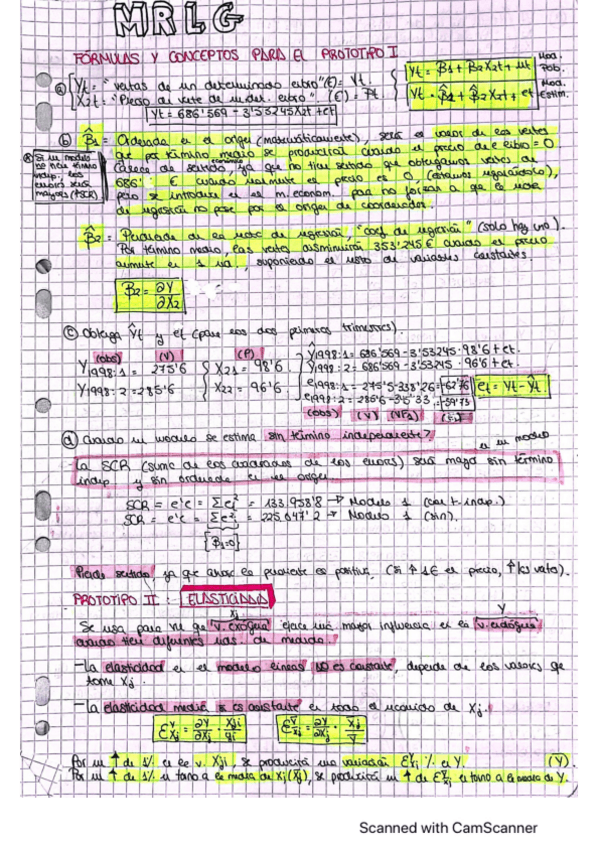 MRLG
FÓRMULAS Y CONCEPTOS PARA EL PROTOTIPO I
a) Yt = "ventas de un determinado libro" (€) = Vt.
X2t = "Precio de venta de un det. libro" (€) = Pt.
Yt = 686'569 - 3'53245X2t + et
Yt = β1 + β2X2t + ut Mod. Pob.
Yt = β̂1 + β̂2X2t + et Mod. Estim.
b) β̂1 = Ordenada en el origen (matemáticamente), será el valor de las ventas
que por término medio se producirá cuando el precio de el libro = 0.
Carece de sentido económico, ya que no tiene sentido que obtengamos ventas de
686' € cuando realmente el precio es 0 (estamos regalándolo),
pero se introduce en el m. econom. para no forzar a que la
de regresión no pase por el origen de coordenadas.
* Si un modelo
no tiene término
indep. los
errores será
mayores (↑SCR)
β̂2 = Pendiente de la de regresión, "coef de regresión" (solo hay uno).
Por término medio, las ventas disminuirá 353'245 € cuando el precio
aumente en 1 ud., suponiendo el resto de variables constantes.
β2 = ∂Y / ∂X2
c) Obtenga Ŷt y et (para los dos primeros trimestres).
(obs) (V) (P)
Y1998:1 = 275'6 X21 = 98'6
Y1998:2 = 285'6 X22 = 96'6
Ŷ1998:1 = 686'569 - 3'53245 · 98'6 + et.
Ŷ1998:2 = 686'569 - 3'53245 · 96'6 + et.
e1998:1 = 275'5 - 338'26 = -62'76
e1998:2 = 285'6 - 345'33 = -59'73
et = Yt - Ŷt
(obs) (V)
d) Cuando un modelo se estima sin término independiente?
en un modelo
La SCR (suma de los cuadrados de los errores) será mayor sin término
indep. y sin ordenada en el origen.
SCR = e'e = Σei² = 133.953'8 → Modelo 1 (con t. indep.)
SCR = e'e = Σei² = 225.047'2 → Modelo 1 (sin).
[β1=0]
Pierde sentido, ya que ahora la pendiente es positiva. (Si ↑ 1€ el precio, ↑ las ventas).
PROTOTIPO II: ELASTICIDAD
Xj Y
Se usa para ver que "v. exógena" ejerce una mayor influencia en la "v. endógena"
cuando tienen diferentes uds. de medida.
- La elasticidad en el modelo lineal NO es constante, depende de los valores que
tome Xj.
- La elasticidad media es constante en todo el recorrido de Xj.
ε = ∂Y/∂Xj · Xji/Yi
ε = ∂Y/∂Xj · X̄j/Ȳ
Por un ↑ de 1% en la v. Xji, se producirá una variación % en Y.
(Ȳ)
Por un ↑ de 1% en torno a la media de Xj (X̄j), se producirá un ↑ de en torno a la media de Y.
Scanned with CamScanner